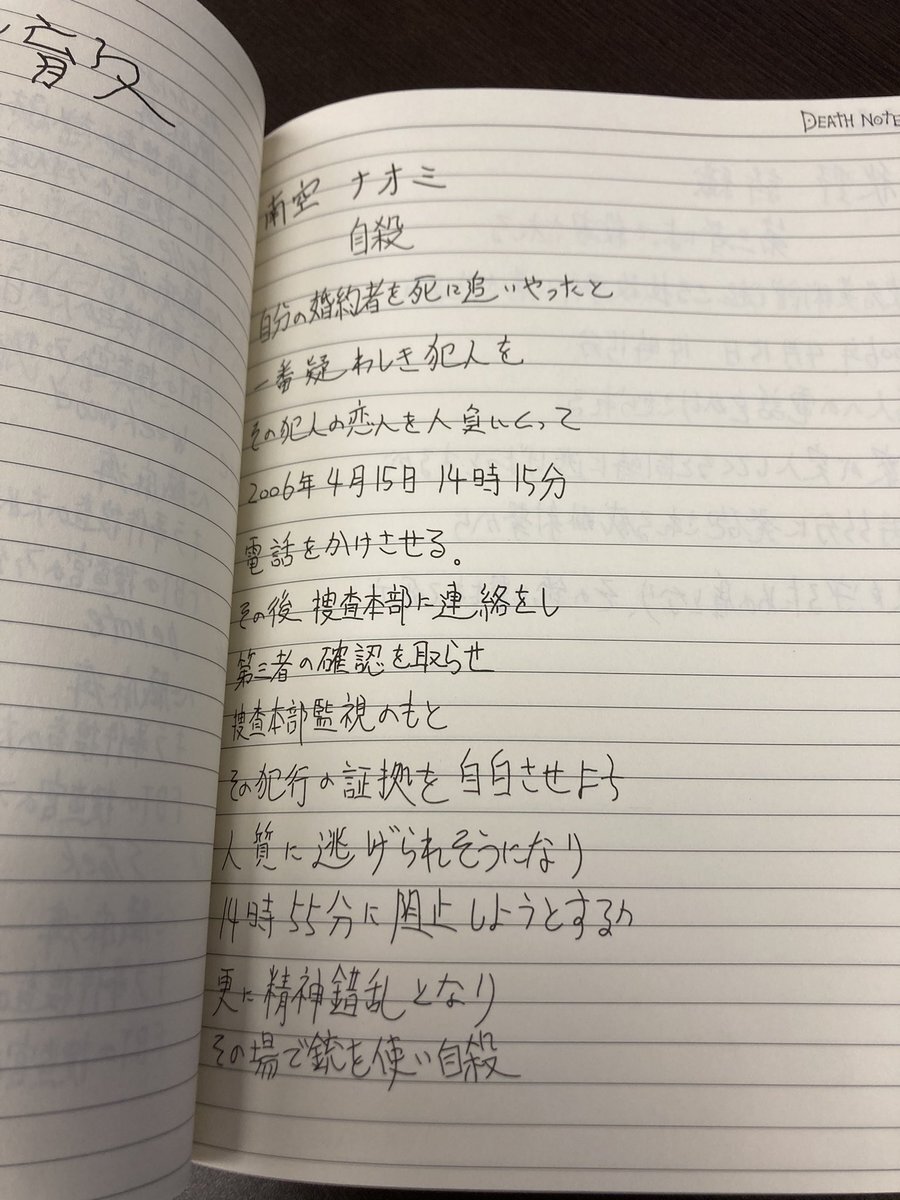 DEATH NOTE
南空 ナオミ
自殺
自分の婚約者を死に追いやったと
一番疑わしき犯人を
その犯人の恋人を人質にとって
2006年4月15日 14時15分
電話をかけさせる。
その後 捜査本部に連絡をし
第三者の確認を取らせ
捜査本部監視のもと
その犯行の証拠を自白させよう
人質に逃げられそうになり
14時55分に阻止しようとするが
更に精神錯乱となり
その場で銃を使い自殺